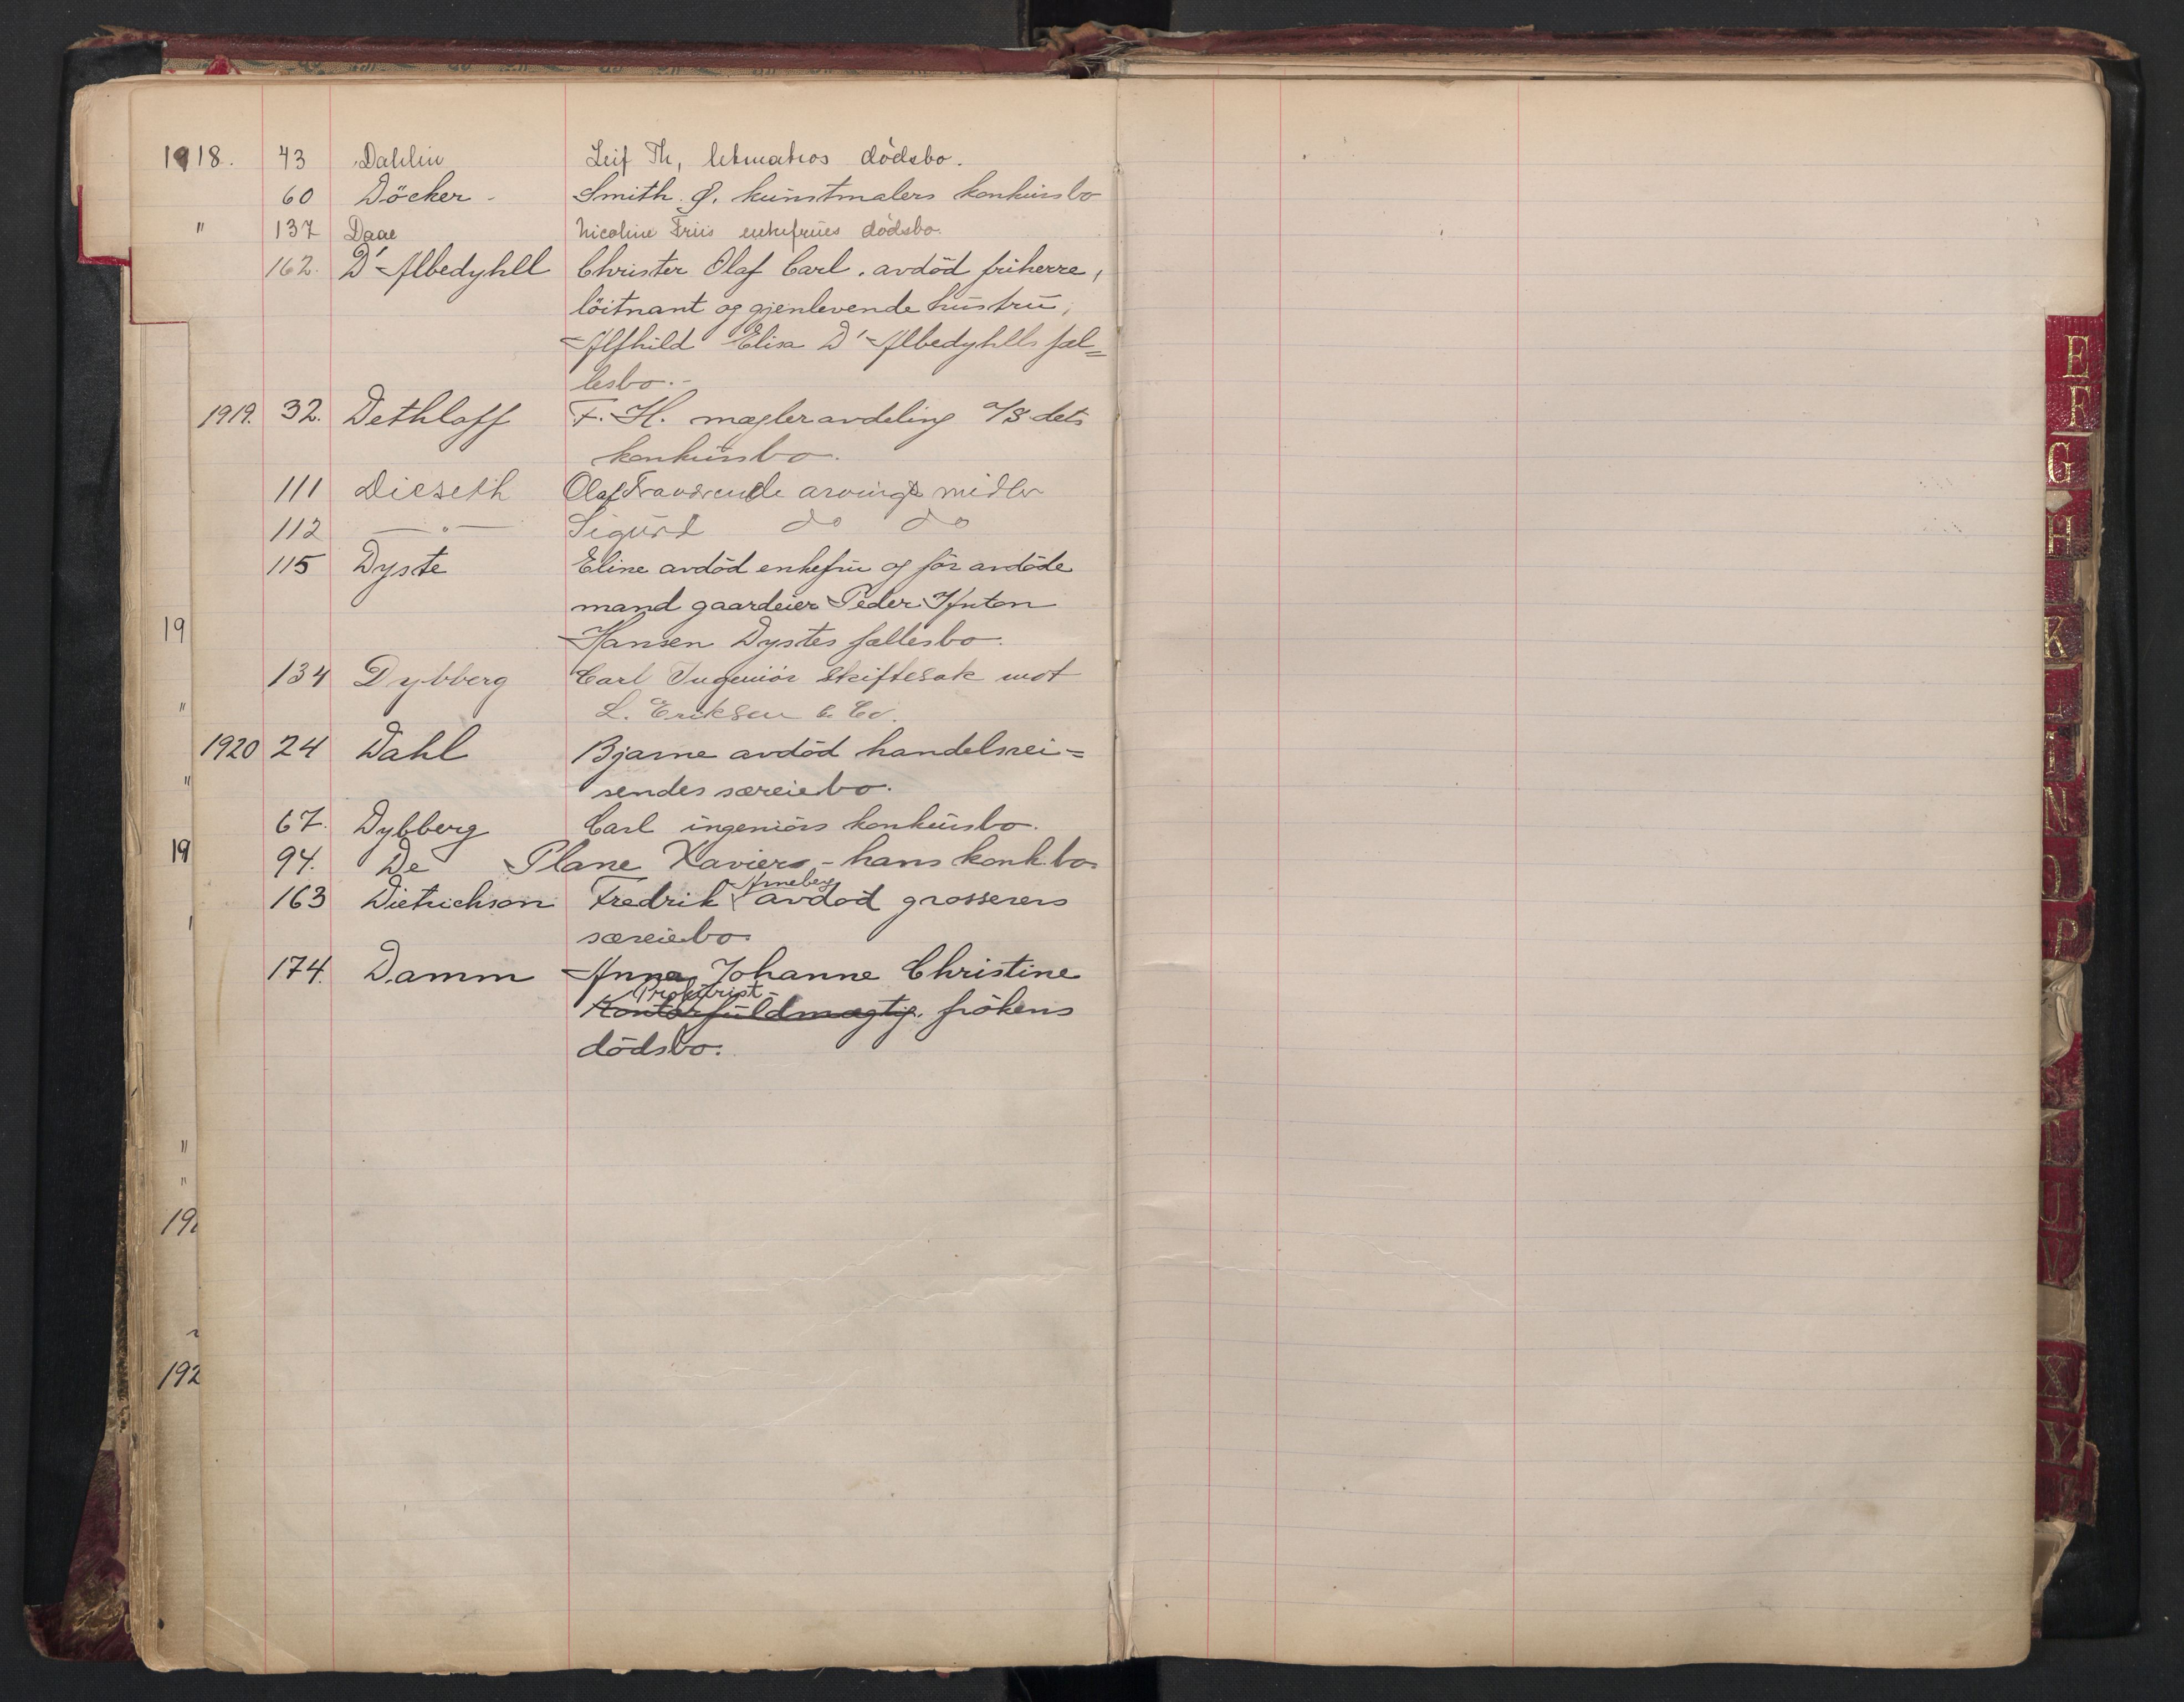 1918. 43 Dahlin Leif Th, letmatros dödsbo.
60 Döcker - Smith. J. kunstmalers konkursbo
" 137 Daae Nicoline Friis enkefrues dödsbo.
162. D'Albedyhll Christer Olaf Carl. avdöd friherre,
löitnant og gjenlevende hustru,
Alfhild Elisa D'Albedyhlls fæl=
lesbo.-
1919. 32. Dethloff F. H. mægleravdeling A/S dets
konkursbo.
111 Dieseth Olaf Fraværende arvings midler
112 — " — Sigurd do do
115 Dyste Eline avdöd enkefru og för avdöde
mand gaardeier Peder Anton
19 Hansen Dystes fællesbo.
134 Dybberg Carl Ingeniör Skiftesak mot
" L. Eriksen & Co.
1920 24 Dahl Bjarne avdöd handelsrei=
" sendes særeiebo.
67. Dybberg Carl ingeniörs konkursbo.
19 94. De Plane Xaviers - hans konk.bo.
Arneberg
163 Dietrichson Fredrik avdöd grosserers
særeiebo.
174. Damm Anna Johanne Christine
Prokurist-
Kontorfuldmægtig. frökens
dödsbo.
"
"
19
192
E
F
G
H
K
N
O
P
S
T
U
V
X
Y